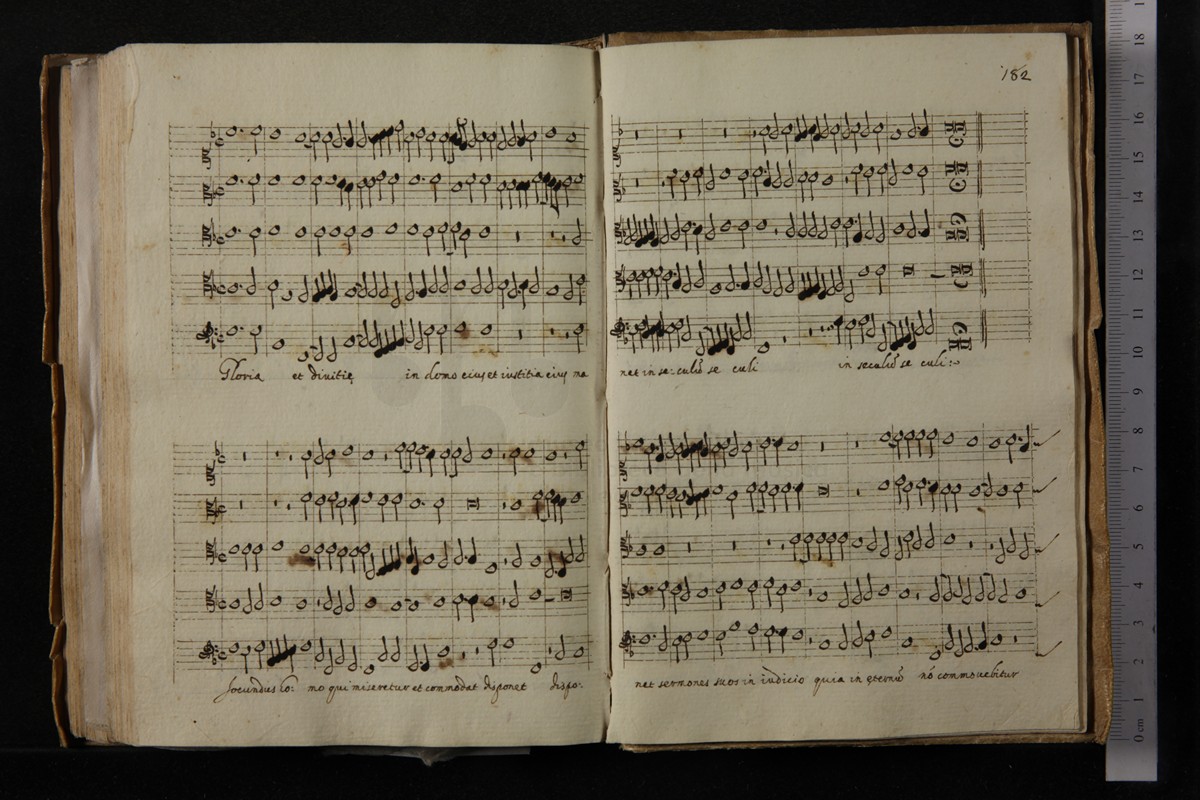 182
Gloria et divitię in domo eius et iustitia eius ma
net in se: culũ se culi in seculũ se culi:
Jocundus ho: mo qui miseretur et commodat disponet dispo:
net sermones suos in iudicio quia in ęternũ nõ commovebitur
0 cm 1 2 3 4 5 6 7 8 9 10 11 12 13 14 15 16 17 18